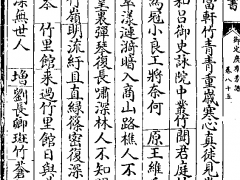 書
當軒竹青青重歲寒心貞徒見
和呂御史詠院中叢竹聞君庭竹
爲冠小良工將奈何 原 王維
羣漾漣漪暗入商山路樵人不
裏彈琴復長嘯深林人不知
竹嶺明流紆且直綠篠密復深
岑 竹里館來過竹里館日與
深無世人 增 劉長卿斑竹蒼